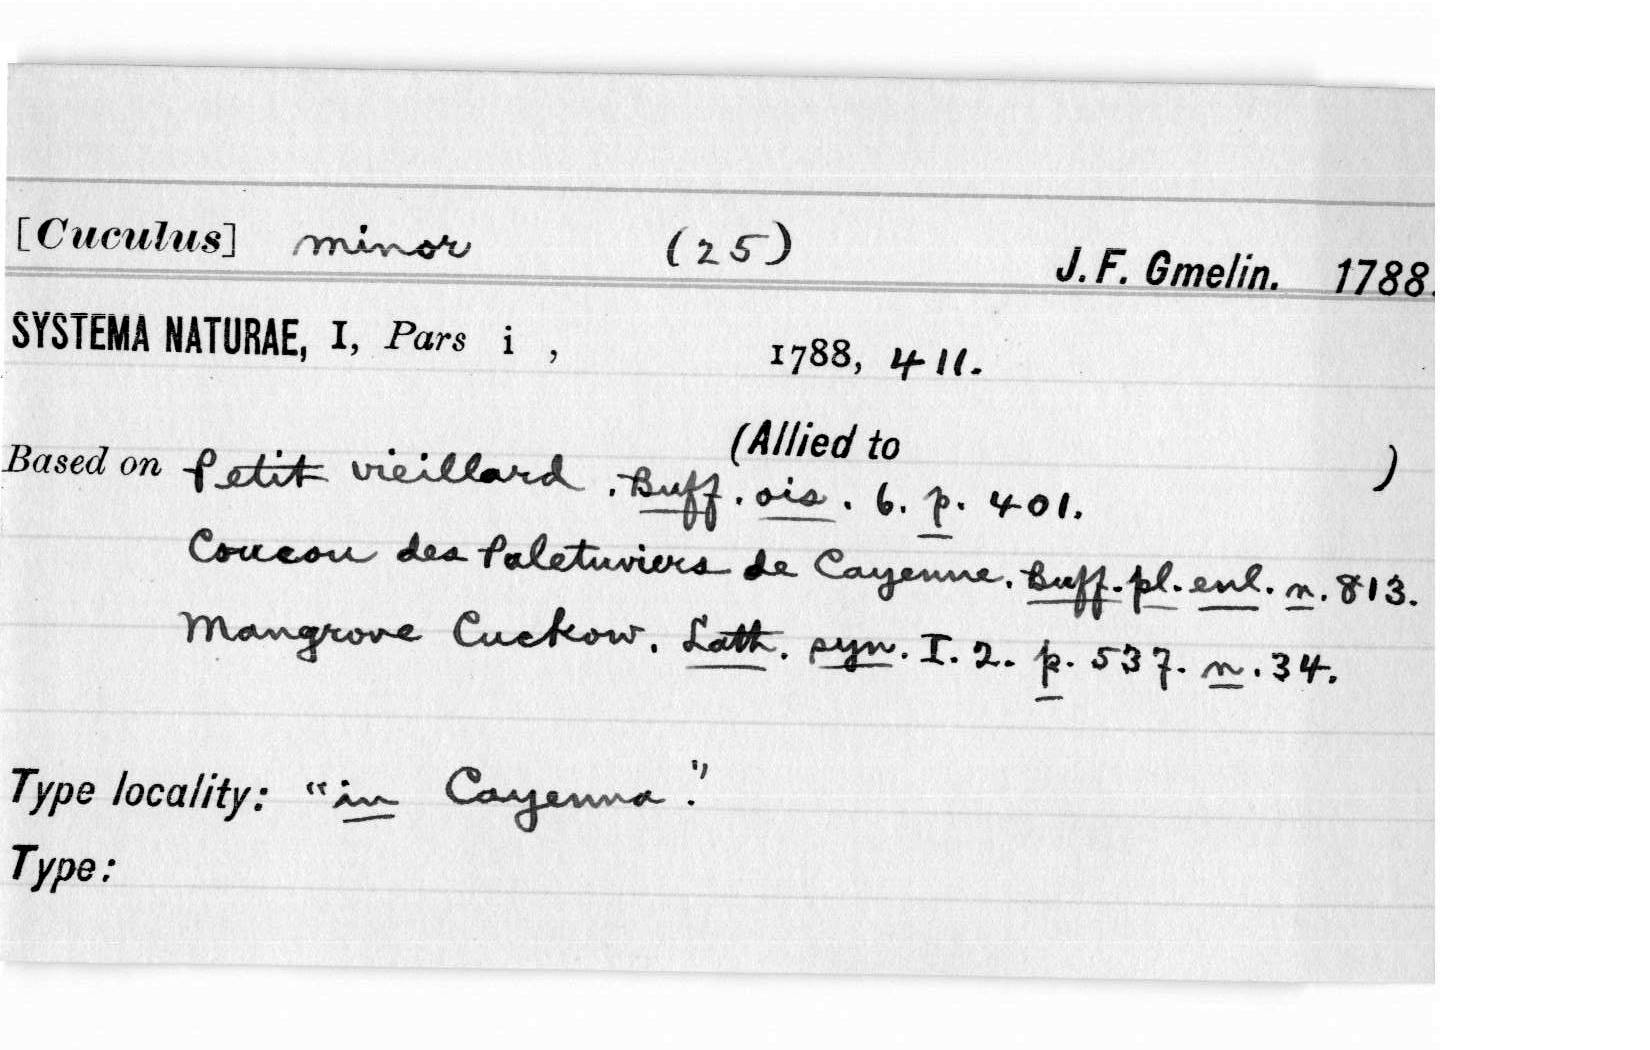 [Cuculus] minor (25) J. F. Gmelin. 1788.
SYSTEMA NATURAE, I, Pars i , 1788, 411.
(Allied to )
Based on Petit vieillard . Buff. ois. 6. p. 401.
Coucou des Paletuviers de Cayenne. Buff. pl. enl. n. 813.
Mangrove Cuckow. Lath. syn. I. 2. p. 537. n. 34.
Type locality: "in Cayenna."
Type: